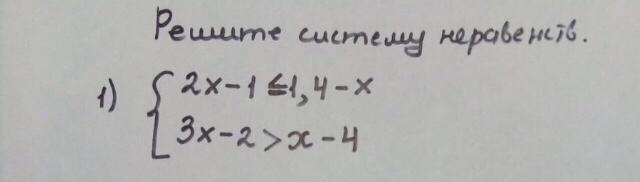 Решите систему неравенств.
1) { 2x-1≤1,4-x
3x-2>x-4